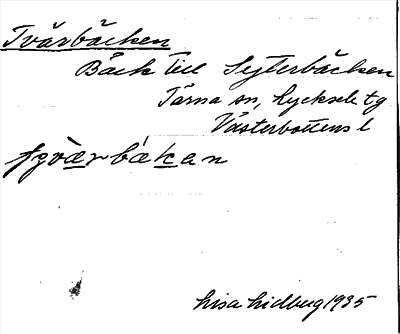 Tvärbäcken
Bäck till Syterbäcken
Tärna sn, Lycksele tg
Västerbottens l
tværbækan
Lisa Lidberg 1935